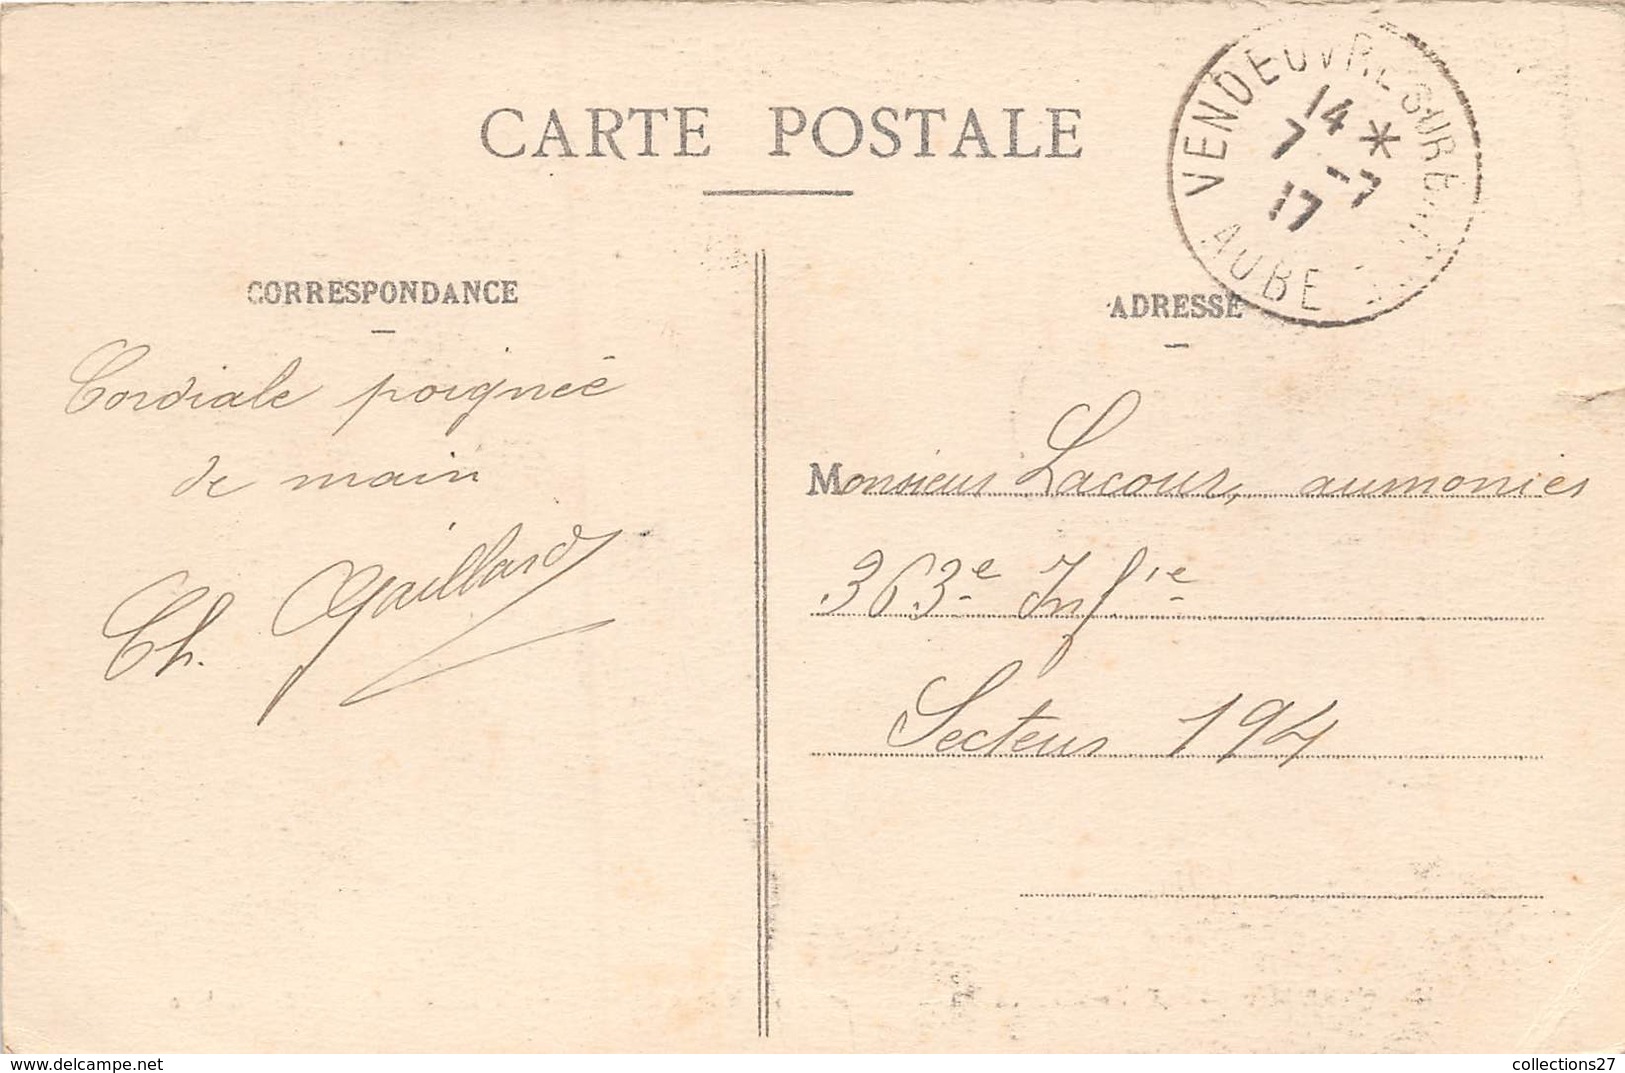 CARTE POSTALE
VENDEUVRE SUR BARSE
14 *
7 -7
17
AUBE
CORRESPONDANCE
Cordiale poignée
de main
Ch. Gaillard
ADRESSE
Monsieur Lacour, aumonier
363e Infie
Secteur 194
www.delcampe.net
collections27